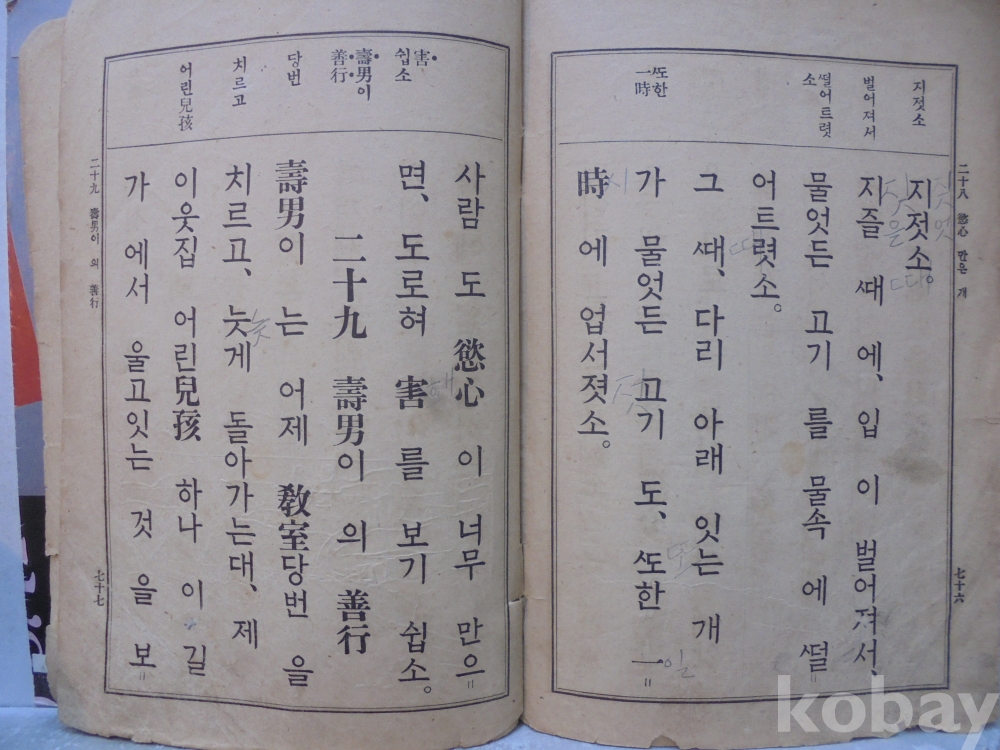 지젓소
벌어져서
떨어트렷
소
ᄯᅩ한
一時
二十八 慾心 만은 개
지젓소。
지즐 ᄯᅢ에、입이 벌어져서、
물엇든 고기를 물속에 ᄯᅥᆯ=
어트렷소。
그 ᄯᅢ、다리 아래 잇는 개
가 물엇든 고기도、ᄯᅩ한 一=
時에 업서젓소。
七十六
害
쉽소
壽男이
善行
당번
치르고
어린兒孩
사람도 慾心이 너무 만으=
면、도로혀 害를 보기 쉽소。
二十九 壽男이의 善行
壽男이는 어제 敎室당번을
치르고、늦게 돌아가는대、제
이웃집 어린兒孩 하나이 길
가에서 울고잇는 것을 보=
二十九 壽男이의 善行
七十七
kobay